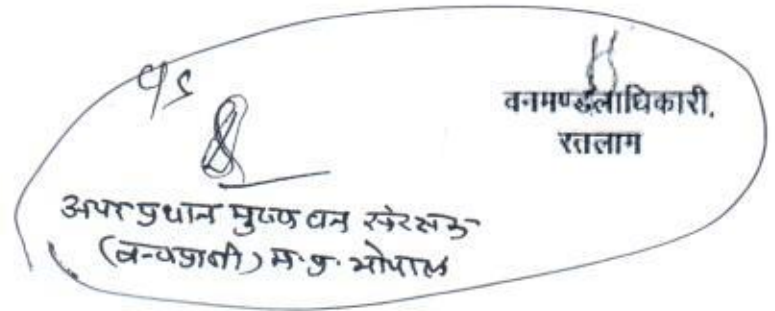 C/S
वनमण्डलाधिकारी,
रतलाम
अपर प्रधान मुख्य वन संरक्षक
(वन्यप्राणी) म.प्र. भोपाल